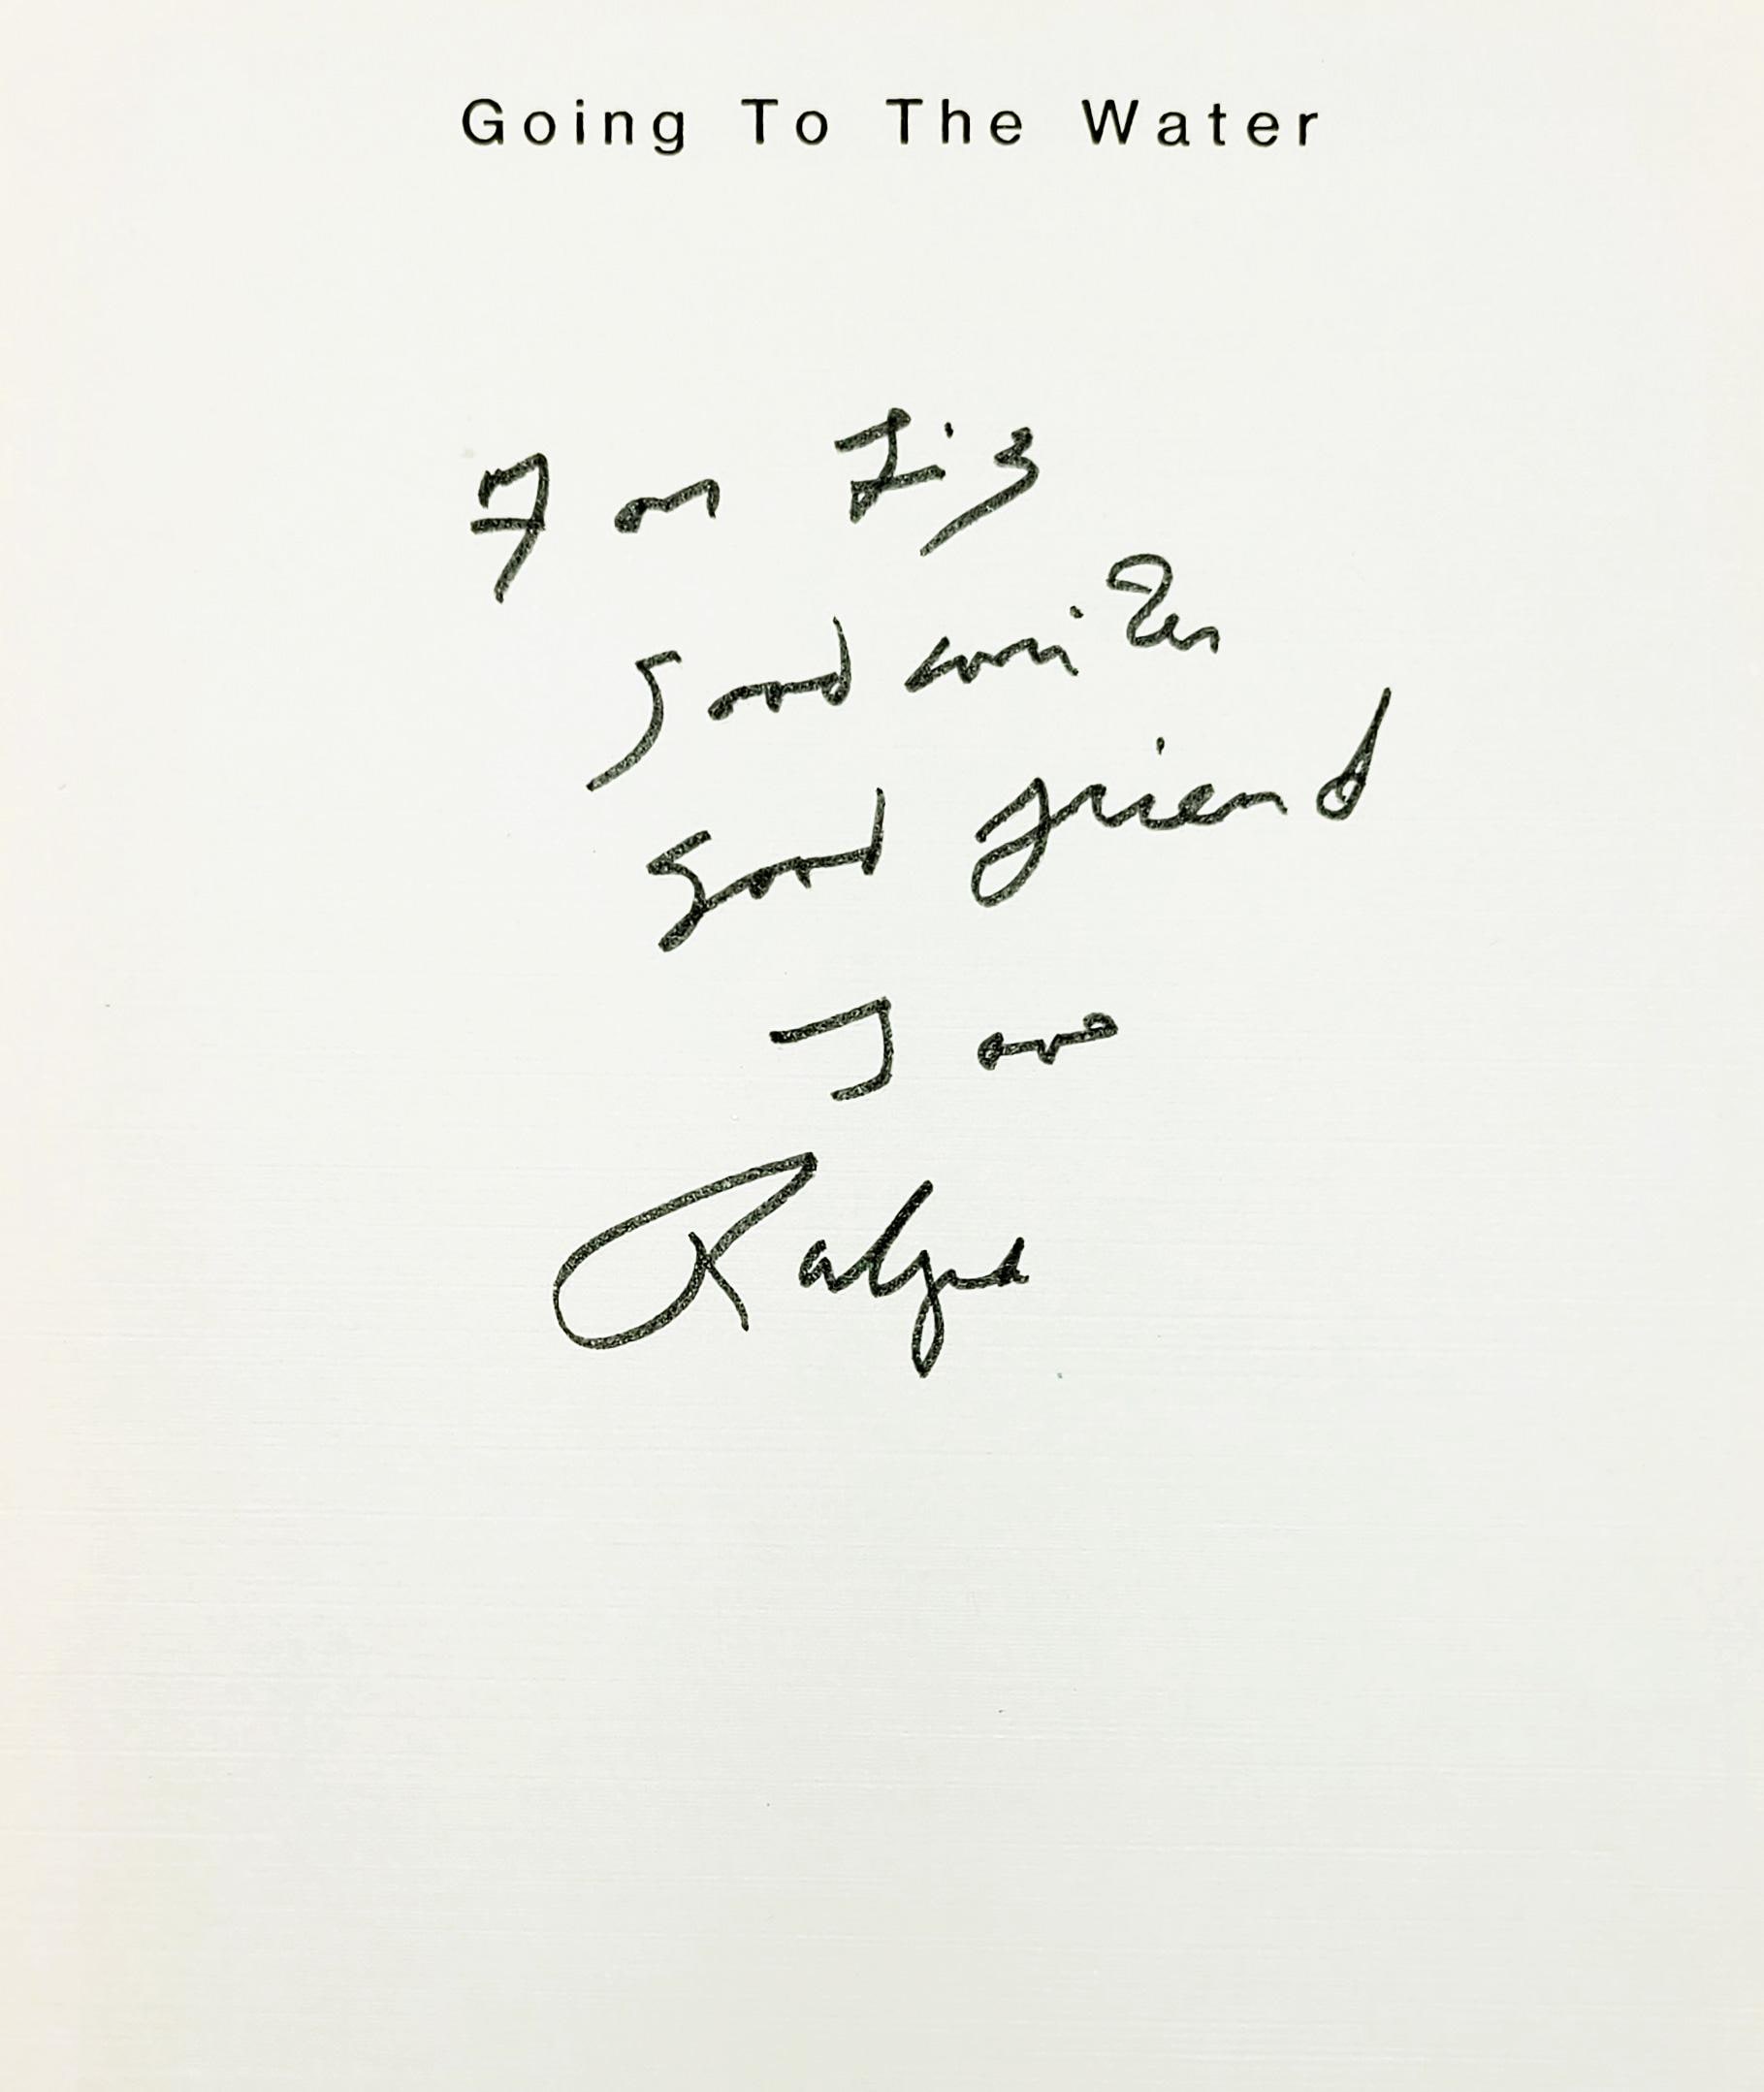 Going To The Water
For Liz
good writer
good friend
Love
Ralph